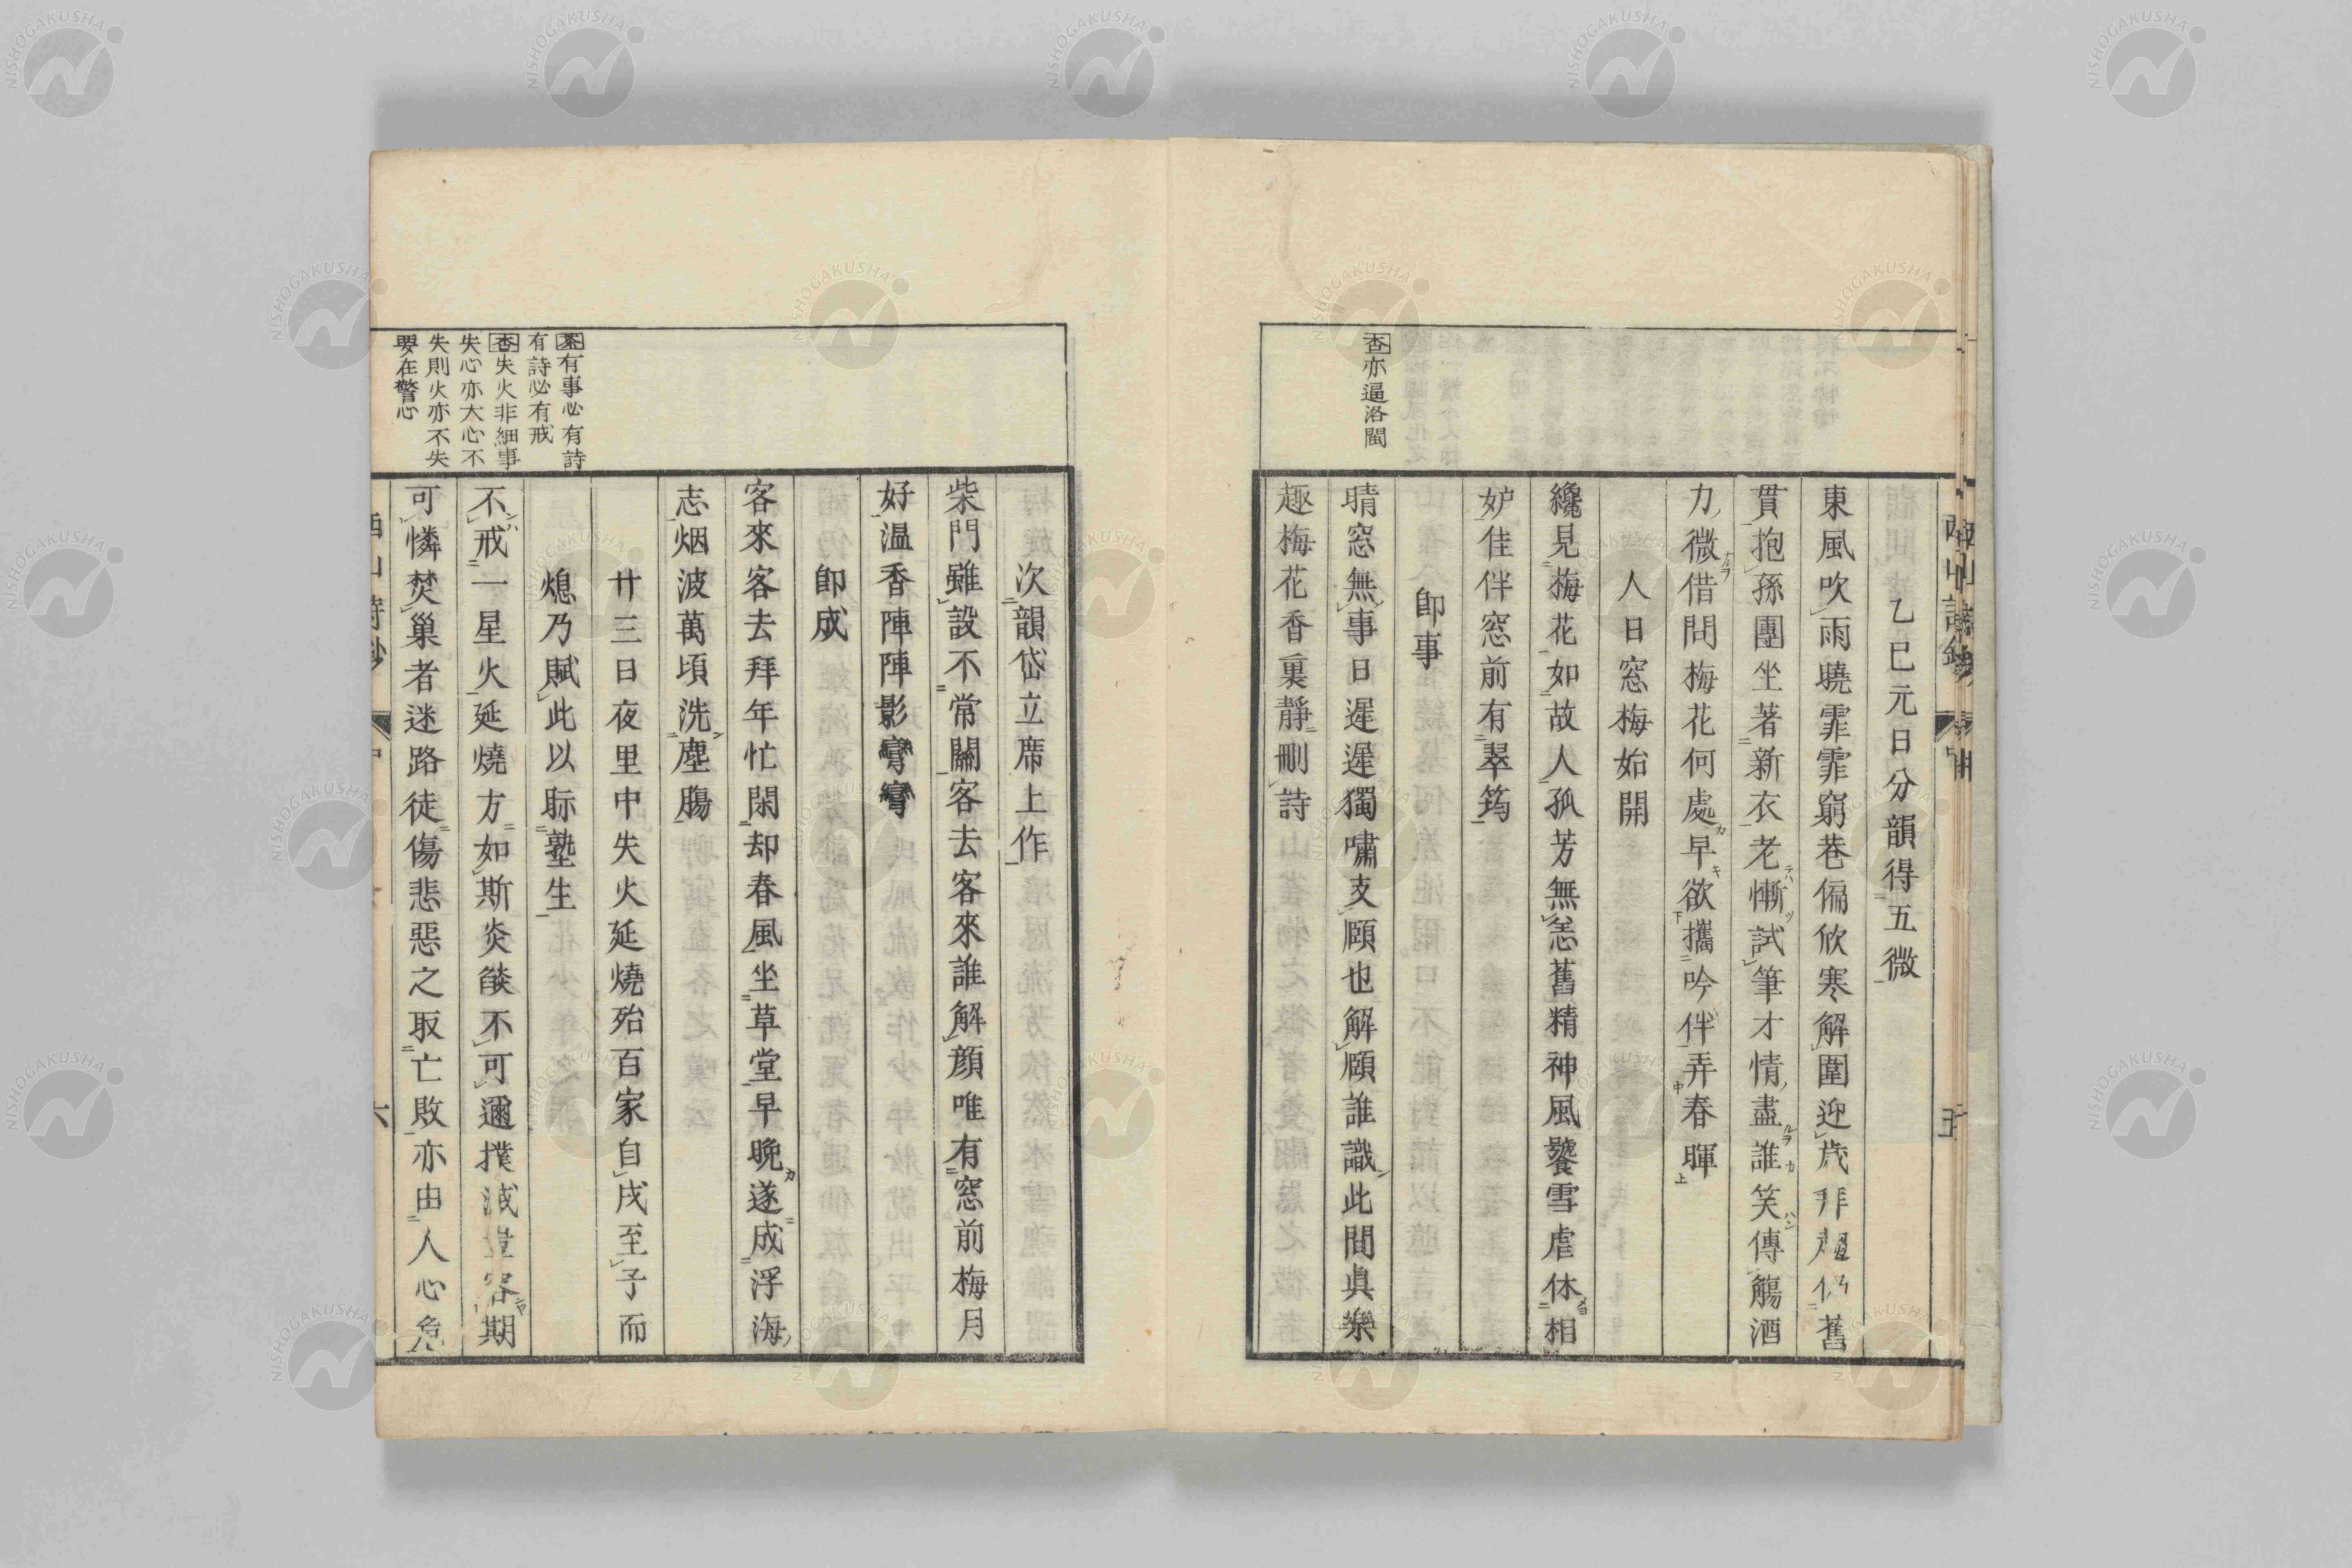 乙巳元日分韻得五微
東風吹雨曉霏霏窮巷偏欣寒解圍迎歲拜 舊
貫抱孫團坐著新衣老慚試筆才情盡誰笑傳觴酒
力微借問梅花何處早欲攜吟伴弄春暉
人日窓梅始開
纔見梅花如故人孤芳無恙舊精神風饕雪虐休相
妒佳伴窓前有翠筠
卽事
杏亦逼洛閩
晴窓無事日遲遲獨嘯支頤也解頤誰識此間眞樂
趣梅花香裏靜刪詩
次韻岱立席上作
柴門雖設不常關客去客來誰解顏唯有窓前梅月
好溫香陣陣影彎彎
卽成
客來客去拜年忙閑却春風坐草堂早晚遂成浮海
志烟波萬頃洗塵膓
廿三日夜里中失火延燒殆百家自戌至子而
熄乃賦此以眎塾生
有事必有詩
有詩必有戒
杏失火非細事
失心亦大心不
失則火亦不失
要在警心
不戒一星火延燒方如斯炎燄不可邇撲滅豈容期
可憐焚巢者迷路徒傷悲惡之取亡敗亦由人心危
西山詩鈔
五
六
NISHOGAKUSHA